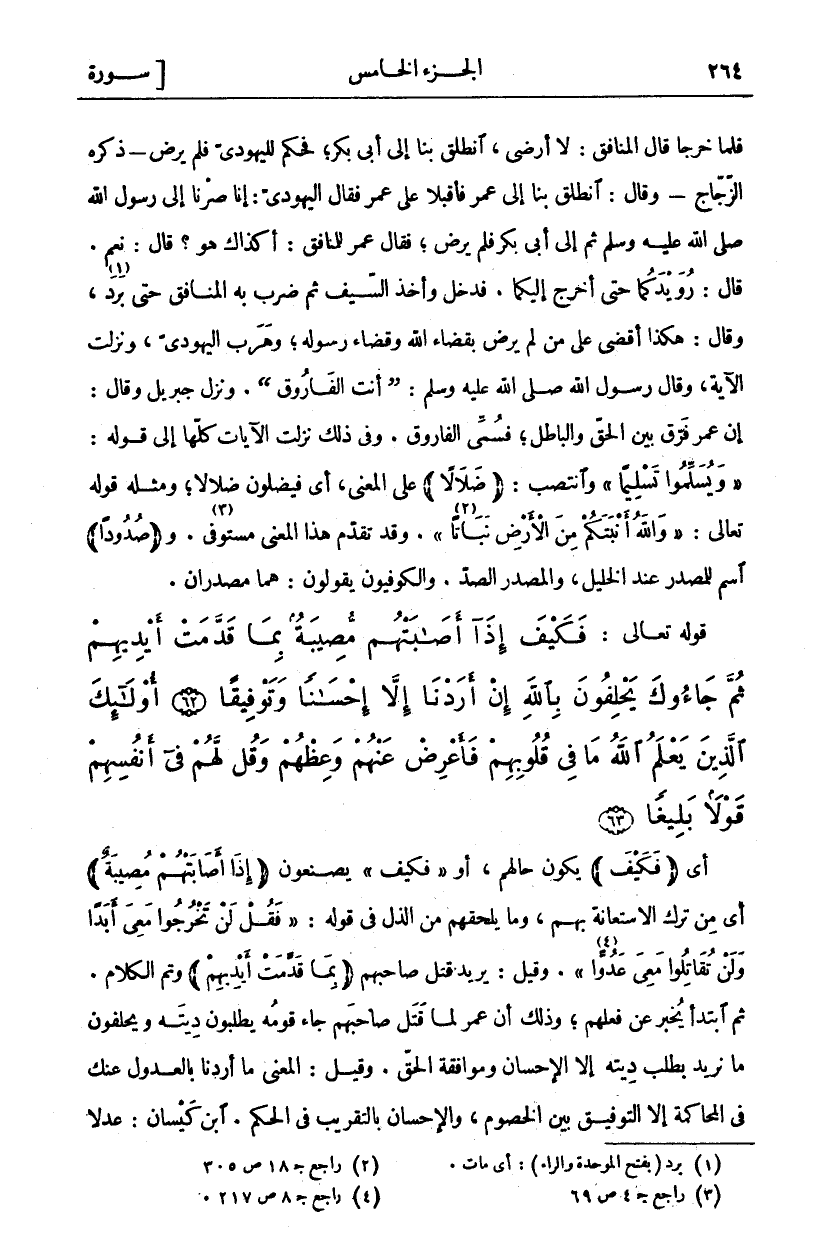 ٢٦٤ الجـزء الخـامس [ سـورة
فلما خرجا قال المنافق : لا أرضى ، ٱنطلق بنا إلى أبى بكر؛ فحكم لليهودىّ فلم يرض – ذكره
الزّجّاج – وقال : ٱنطلق بنا إلى عمر فأقبلا على عمر فقال اليهودىّ : إنا صرْنا إلى رسول الله
صلى الله عليـه وسلم ثم إلى أبى بكر فلم يرض ؛ فقال عمر للمنافق : أكذاك هو ؟ قال : نعم .
قال : رُوَيْدَكُما حتى أخرج إليكما . فدخل وأخذ السّيف ثم ضرب به المنـافق حتى بَرَد (١) ،
وقال : هكذا أقضى على من لم يرض بقضاء الله وقضاء رسوله ؛ وهَرَب اليهودىّ ، ونزلت
الآية ، وقال رسـول الله صـلى الله عليه وسلم : ”أنت الفَـارُوق“ . ونزل جبريل وقال :
إن عمر فَرَق بين الحقّ والباطل ؛ فسُمِّى الفاروق . وفى ذلك نزلت الآيات كلّها إلى قـوله :
« وَيُسَلِّمُوا تَسْلِيمًا » وٱنتصب : ﴿ ضَلَالًا ﴾ على المعنى ، أى فيضلون ضلالا ؛ ومثـله قوله
تعالى : « وَاللهُ أَنْبَتَكُمْ مِنَ الْأَرْضِ نَبَـاتًا (٢) » . وقد تقدّم هذا المعنى مستوفى (٣) . و ﴿صُدُودًا﴾
ٱسم للمصدر عند الخليل ، والمصدر الصدّ . والكوفيون يقولون : هما مصدران .
قوله تعـالى : فَكَيْفَ إِذَآ أَصَـٰبَتْهُم مُّصِيبَةٌۢ بِمَـا قَدَّمَتْ أَيْدِيهِمْ
ثُمَّ جَآءُوكَ يَحْلِفُونَ بِٱللَّهِ إِنْ أَرَدْنَآ إِلَّآ إِحْسَـٰنًا وَتَوْفِيقًا ﴿٦٢﴾ أُوْلَـٰٓئِكَ
ٱلَّذِينَ يَعْلَمُ ٱللَّهُ مَا فِى قُلُوبِهِمْ فَأَعْرِضْ عَنْهُمْ وَعِظْهُمْ وَقُل لَّهُمْ فِىٓ أَنفُسِهِمْ
قَوْلًۢا بَلِيغًا ﴿٦٣﴾
أى ﴿ فَكَيْفَ ﴾ يكون حالهم ، أو « فكيف » يصـنعون ﴿ إِذَا أَصَابَتْهُمْ مُصِيبَةٌ ﴾
أى مِن ترك الاستعانة بهـم ، وما يلحقهم من الذل فى قوله : « فَقُـلْ لَنْ تَخْرُجُوا مَعِىَ أَبَدًا
وَلَنْ تُقَاتِلُوا مَعِىَ عَدُوًّا (٤) » . وقيل : يريد قتل صاحبهم ﴿ بِمَـا قَدَّمَتْ أَيْدِيهِمْ ﴾ وتم الكلام .
ثم ٱبتدأ يُخبر عن فعلهم ؛ وذلك أن عمر لمـا قَتَل صـاحبَهم جاء قومُه يطلبون دِيتَـه ويحلفون
ما نريد بطلب دِيته إلا الإحسان وموافقة الحقّ . وقيـل : المعنى ما أردنا بالعـدول عنك
فى المحاكمة إلا التوفيـق بين الخصوم ، والإحسان بالتقريب فى الحكم . ٱبن كَيْسان : عدلا
(١) برد (بفتح الموحدة والراء) : أى مات . (٢) راجع جـ ١٨ ص ٣٠٥
(٣) راجع جـ ٤ ص ٦٩ (٤) راجع جـ ٨ ص ٢١٧ .